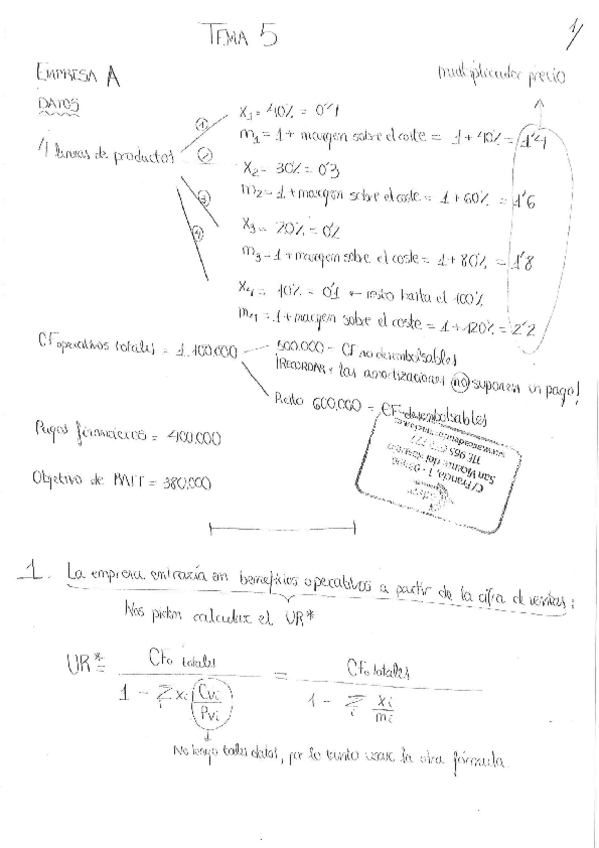 TEMA 5
1/
EMPRESA A
multiplicador precio
DATOS
4 líneas de productos
① X₁ = 40% = 0'4
m₁ = 1 + margen sobre el coste = 1 + 40% = 1'4
② X₂ = 30% = 0'3
m₂ = 1 + margen sobre el coste = 1 + 60% = 1'6
③ X₃ = 20% = 0'2
m₃ = 1 + margen sobre el coste = 1 + 80% = 1'8
④ X₄ = 10% = 0'1 ← resto hasta el 100%
m₄ = 1 + margen sobre el coste = 1 + 120% = 2'2
CF operativos totales = 1.100.000
500.000 - CF no desembolsables
¡RECORDAR: las amortizaciones no suponen un pago!
Resto 600.000 = CF desembolsables
Pagos financieros = 400.000
Objetivo de BAIT = 380.000
C/ Francia, 1 -
San Vicente del Raspeig
Tlf. 965
1. La empresa entraría en beneficios operativos a partir de la cifra de ventas:
Nos piden calcular el UR*
UR* = CFo totales / 1 - Σi xi Cvi/Pvi = CFo totales / 1 - Σi xi/mi
No tengo tales datos, por lo tanto usar la otra fórmula.